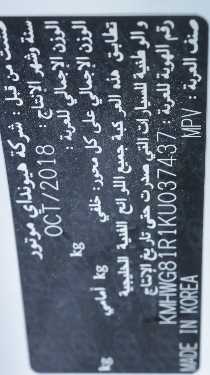 صنعت من قبل : شركة هيونداي موتور
سنة وشهر الإنتاج : OCT/2018
الوزن الإجمالي للعربة : kg
الوزن الإجمالي على كل محور: خلفي kg أمامي kg
تطابق هذه المركبة جميع اللوائح الفنية الخليجية
والوطنية للسيارات التي صدرت حتى تاريخ الإنتاج
رقم الهوية للعربة : KMHWG81R1KU037437
صنف العربة : MPV MADE IN KOREA